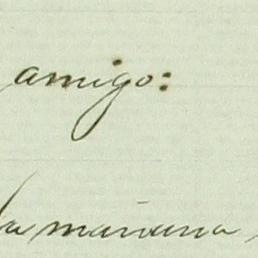 amigo:
la mañana